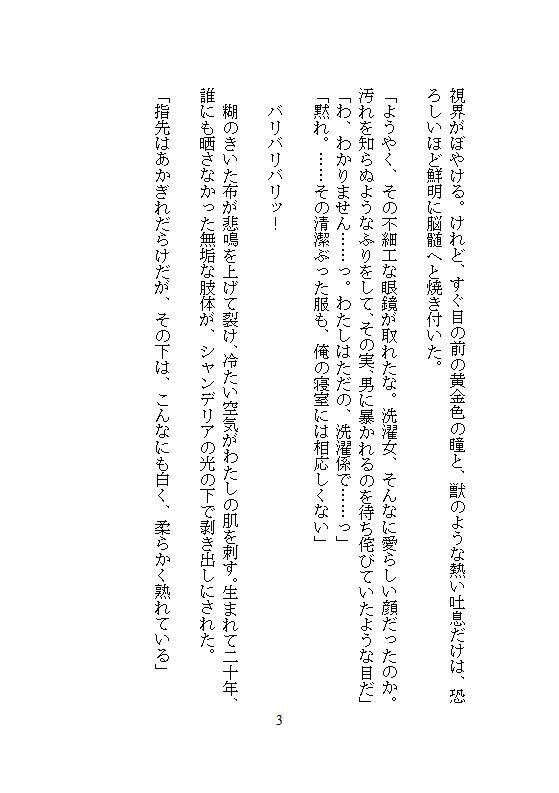 視界がぼやける。けれど、すぐ目の前の黄金色の瞳と、獣のような熱い吐息だけは、恐
ろしいほど鮮明に脳髄へと焼き付いた。
「ようやく、その不細工な眼鏡が取れたな。洗濯女、そんなに愛らしい顔だったのか。
汚れを知らぬようなふりをして、その実、男に暴かれるのを待ち侘びていたような目だ」
「わ、わかりません……っ。わたしはただの、洗濯係で……っ」
「黙れ。……その清潔ぶった服も、俺の寝室には相応しくない」
バリバリバリッ！
糊のきいた布が悲鳴を上げて裂け、冷たい空気がわたしの肌を刺す。生まれて二十年、
誰にも晒さなかった無垢な肢体が、シャンデリアの光の下で剥き出しにされた。
「指先はあかぎれだらけだが、その下は、こんなにも白く、柔らかく熟れている」
3